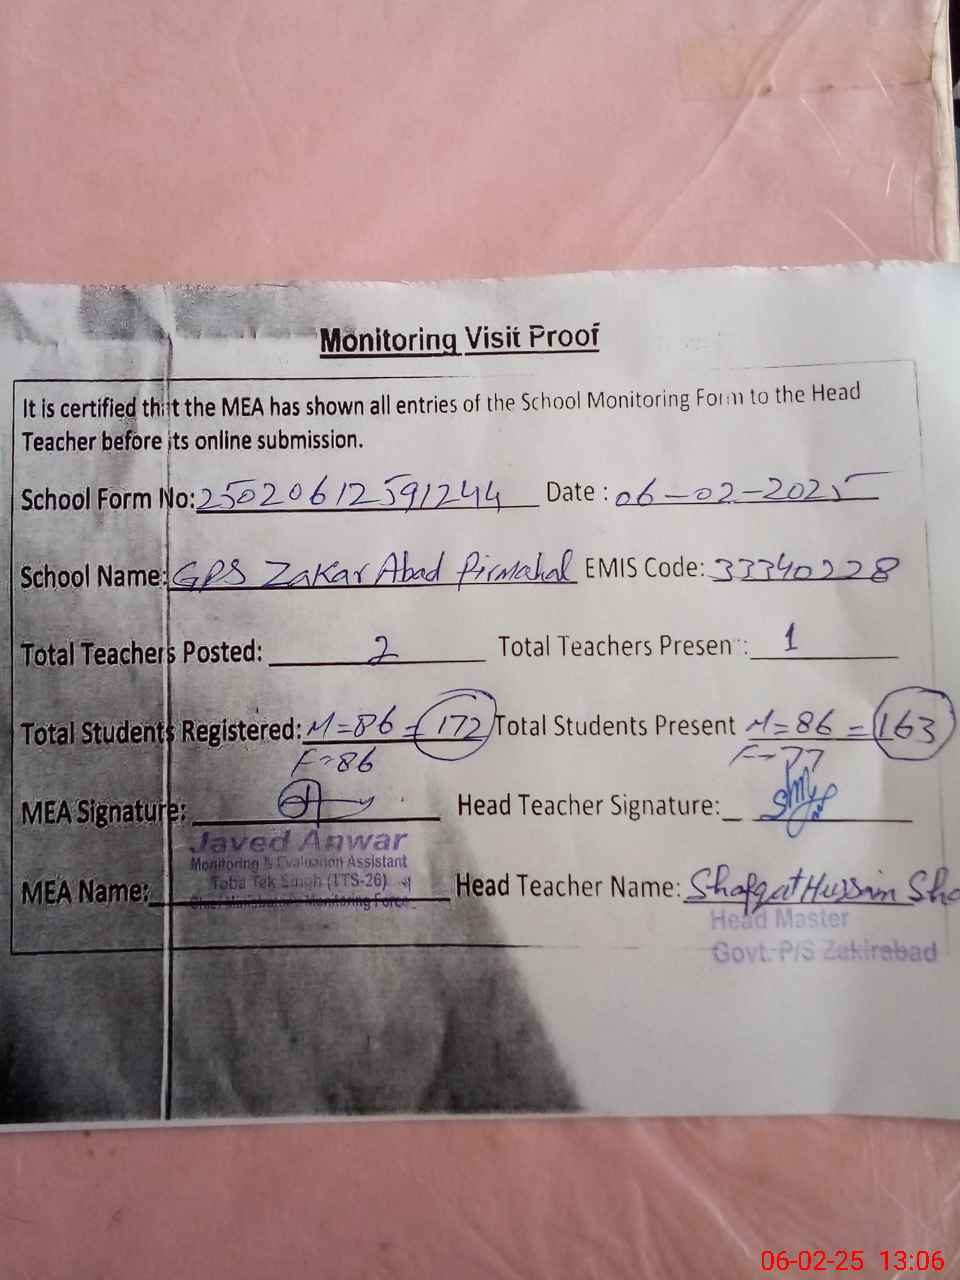 Monitoring Visit Proof
It is certified that the MEA has shown all entries of the School Monitoring Form to the Head
Teacher before its online submission.
School Form No: 25020612591244 Date : 06-02-2025
School Name: GPS Zakar Abad Pirmahal EMIS Code: 33340228
Total Teachers Posted: 2 Total Teachers Present: 1
Total Students Registered: M=86 = 172 Total Students Present M=86 = 163
F=86 F=77
MEA Signature: Head Teacher Signature:
Javed Anwar
Monitoring & Evaluation Assistant
Toba Tek Singh (TTS-26)
MEA Name: Head Teacher Name: Shafqat Hussain Sha
Chief Minister's Monitoring Force
Head Master
Govt. P/S Zakirabad
06-02-25 13:06